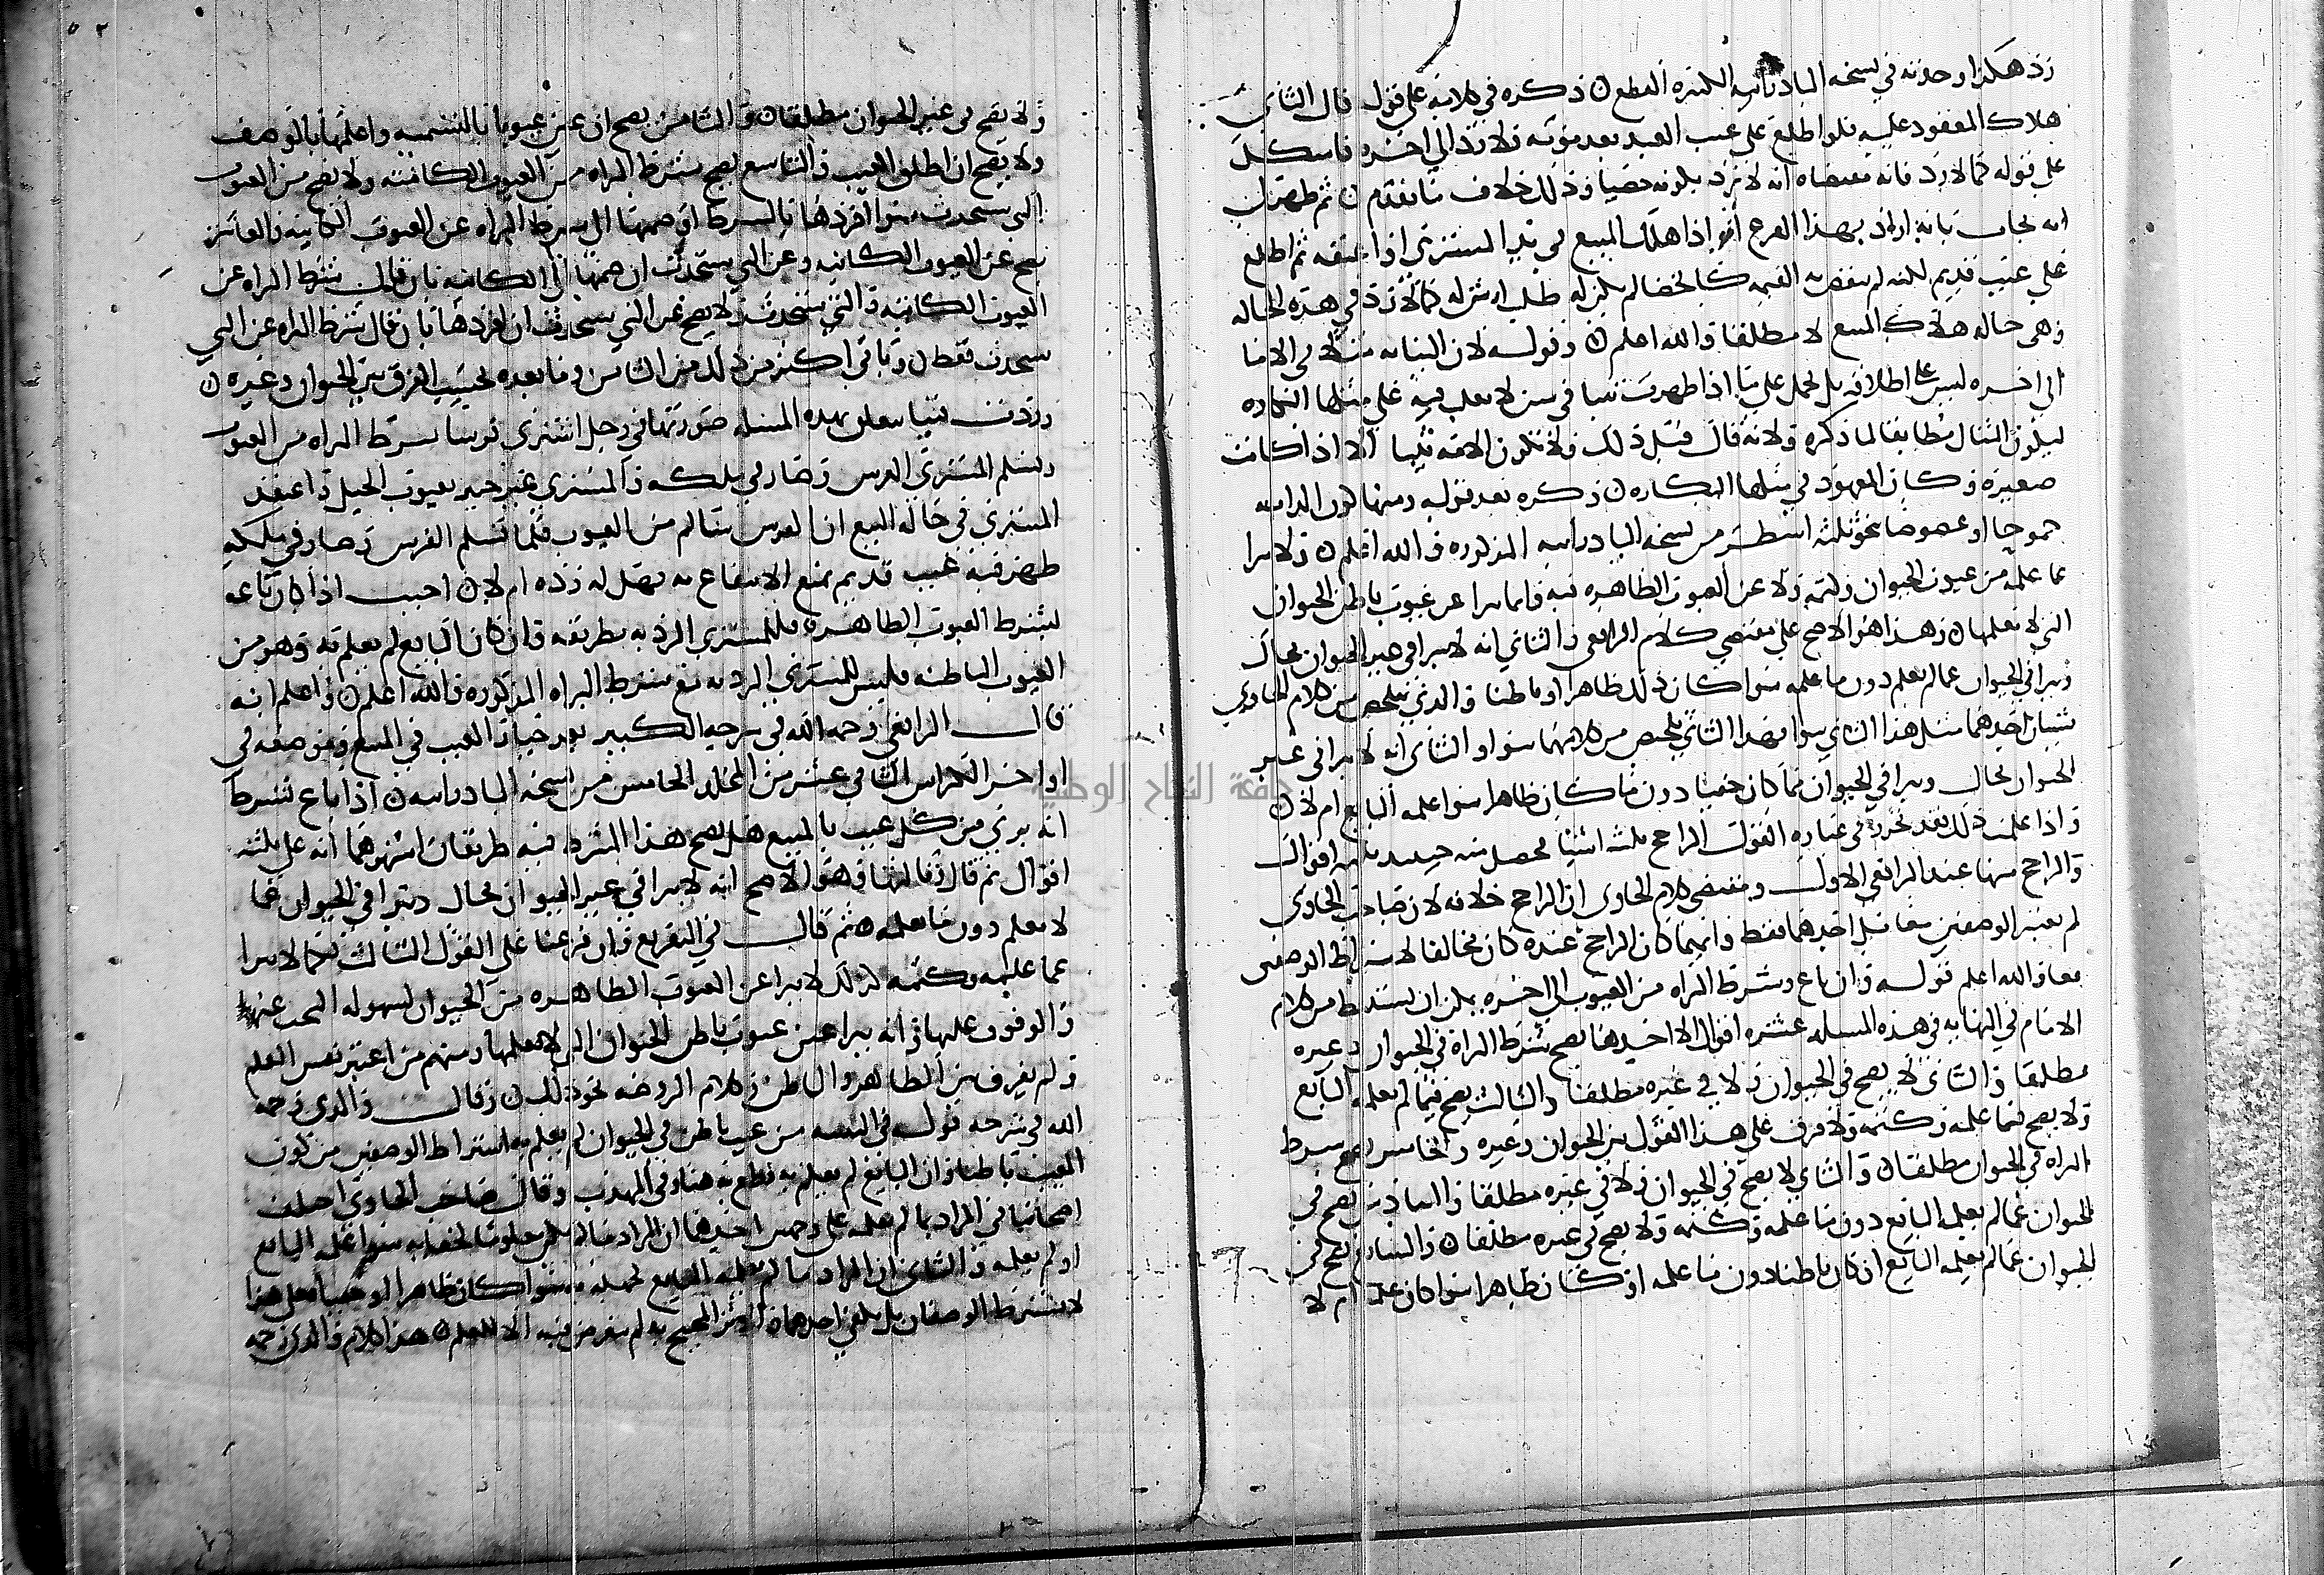 رد هكذا وجدته في نسخه البادرائيه الكثيره القطع ذكره في كلامه على قوله قال الثاني
هلاك المعقود عليه فلو اطلع على عيب العبد بعد موته فلا رد الى اخره فاستشكل
على قوله كما لا رد فانه مقتضاه انه لا يرد بكونه خصيا وذلك خلاف ما تقدم ثم ظهر لي
انه يجاب بانه اراد بهذا الفرع انه اذا هلك المبيع في يد المشتري او اعتقه ثم اطلع
على عيب قديم لكنه لم ينقص به القيمه كالخصا لم يكن له طلب ارش له كما لا رد في هذه الحاله
وهي حاله هلاك المبيع لا مطلقا والله اعلم وقوله لان الثيابه مثلا في الاما
الى اخره ليس على اطلاقه بل يحمل على ما اذا ظهرت ثيبا في سن لا يغلب فيه على مثلها الثيابه
ليكون المثال مطابقا لما ذكره ولانه قال قبل ذلك ولا تكون الامه ثيبا الا اذا كانت
صغيره وكان المعهود في مثلها البكاره ذكره بعد قوله ومنها كون الدابه
جموحا او عضوضا بنحو ثلثه اسطر من نسخه البادرائيه المذكوره والله اعلم ولا يبرا
عما علمه من عيوب الحيوان وكتمه ولا عن العيوب الظاهره فيه وانما يبرا عن عيوب باطن الحيوان
التي لا يعلمها وهذا هو الاصح على مقتضى كلام الرافعي والثاني انه لا يبرا في غير الحيوان بحال
ويبرا في الحيوان عما لم يعلم دون ما علمه سوا كان ذلك ظاهرا او باطنا والذي يتلخص من كلام الحاوي
شيئان احدهما مثل هذا الثاني سوا فهذا الثاني يتلخص من كلامهما سوا والثاني انه لا يبرا في غير
الحيوان بحال ويبرا في الحيوان مما كان خفيا دون ما كان ظاهرا سوا علمه البايع ام لا
واذا علمت ذلك فقد تحرر في عباره القول الراجح ثلثه اشيا يحصل منه حينئذ ثلثه اقوال
والراجح منها عند الرافعي الاول ومقتضى كلام الحاوي ان الراجح خلافه لان صاحب الحاوي
لم يعتبر الوصفين معا بل احدهما فقط وايهما كان الراجح عنده كان مخالفا لاشتراط الوصفين
معا والله اعلم قوله وان باع وشرط البراه من العيوب الى اخره يمكن ان يستنبط من كلام
الامام في النهايه في هذه المسله عشره اقوال الا احدها يصح بشرط البراه في الحيوان وغيره
مطلقا والثاني لا يصح في الحيوان ولا في غيره مطلقا والثالث يصح فيما لم يعلمه البايع
ولا يصح فيما علمه وكتمه ولا فرق على هذا القول بين الحيوان وغيره والخامس يصح بشرط
البراه في الحيوان مطلقا والثاني لا يصح في الحيوان ولا في غيره مطلقا والسادس يصح في
الحيوان عما لم يعلمه البايع دون ما علمه وكتمه ولا يصح في غيره مطلقا والسابع يصح في
الحيوان عما لم يعلمه البايع ان كان باطنا دون ما علمه او كان ظاهرا سوا كان علمه ام لا
٥٢
ولا يصح في غير الحيوان مطلقا والثامن يصح ان عين عيوبا بالتسميه واعلمها بالوصف
ولا يصح ان اطلق العيب والتاسع يصح بشرط البراه من العيوب الكائنه ولا يصح من العيوب
التي ستحدث سوا افردها بالشرط او ضمها الى شرط البراه عن العيوب الكاينه والعاشر
يصح عن العيوب الكائنه وعن التي ستحدث ان ضمها الى الكائنه بان قال بشرط البراه عن
العيوب الكائنه والتي ستحدث ولا يصح عن التي ستحدث ان افردها بان قال بشرط البراه عن التي
ستحدث فقط وياتي اكثر من ذلك من الثامن وما بعده بحسب الفرق بين الحيوان وغيره
وردت فتيا تتعلق بهذه المسله صورتها في رجل اشترى فرسا بشرط البراه من العيوب
وتسلم المشتري الفرس وصار في ملكه والمشتري غير خبير بعيوب الخيل واعتقد
المشتري في حاله البيع ان الفرس سالم من العيوب فلما تسلم الفرس وصار في ملكه
ظهر فيه عيب قديم يمنع الانتفاع به فهل له رده ام لا اجيب اذا كان باعه
بشرط العيوب الظاهره فللمشتري الرد به بطريقه وان كان البايع لم يعلم به وهو من
العيوب الباطنه فليس للمشتري الرد به مع شرط البراه المذكوره والله اعلم واعلم انه
قال الرافعي رحمه الله في شرحه الكبير بعد خيار العيب في المبيع وموضعه في
اواخر الكراس الثاني عشر من المجلد الخامس من نسخه البادرائيه اذا باع بشرط
انه بري من كل عيب بالمبيع هل يصح هذا الشرط فيه طريقان اشهرهما انه على ثلثه
اقوال ثم قال وثالثها وهو الاصح انه لا يبرا في غير الحيوان بحال ويبرا في الحيوان عما
لا يعلم دون ما يعلمه ثم قال في التفريع وان فرعنا على القول الثالث فكما لا يبرا
عما علمه وكتمه كذلك لا يبرا عن العيوب الظاهره من الحيوان لسهوله البحث عنها
والوقوف عليها وانه يبرا عن عيوب باطن الحيوان التي لا يعلمها ومنهم من اعتبر نفس العلم
ولم يفرق بين الظاهر والباطن وكلام الروضه نحو ذلك وقال والدي رحمه
الله في شرحه قوله في التنبيه من عيب باطن في الحيوان لم يعلم به اشتراط الوصفين من كون
العيب باطنا وان البايع لم يعلم به قطع به هنا وفي المهذب وقال صاحب الحاوي اختلف
اصحابنا في المراد بما لم يعلمه على وجهين احدهما ان المراد ما لم يكن معلوما لخفايه سوا علمه البايع
او لم يعلمه والثاني ان المراد ما لم يعلمه البايع لجهله به سوا كان ظاهرا او خفيا فعلى هذا
لا يشترط الوصفان بل يكفي احدهما والاثر المحتج به لم يتعرض فيه الا للعلم هذا كلام والدي رحمه
جامعة النجاح الوطنية